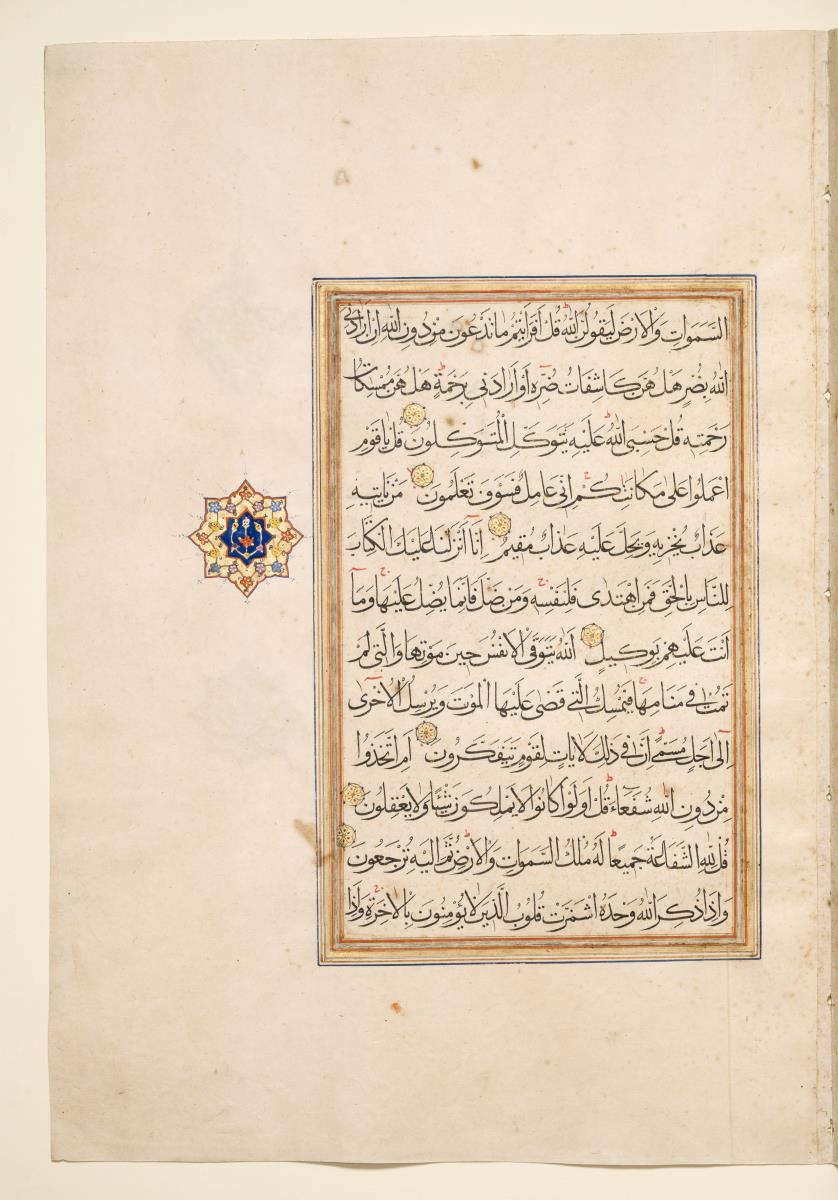 السَّمَوَاتِ وَالْاَرْضَ لَيَقُولُنَّ اللّٰهُ قُلْ اَفَرَاَيْتُمْ مَا تَدْعُونَ مِنْ دُونِ اللّٰهِ اِنْ اَرَادَنِيَ
اللّٰهُ بِضُرٍّ هَلْ هُنَّ كَاشِفَاتُ ضُرِّهِ اَوْ اَرَادَنِي بِرَحْمَةٍ هَلْ هُنَّ مُمْسِكَاتُ
رَحْمَتِهِ قُلْ حَسْبِيَ اللّٰهُ عَلَيْهِ يَتَوَكَّلُ الْمُتَوَكِّلُونَ قُلْ يَا قَوْمِ
اعْمَلُوا عَلَى مَكَانَتِكُمْ اِنِّي عَامِلٌ فَسَوْفَ تَعْلَمُونَ مَنْ يَاْتِيهِ
عَذَابٌ يُخْزِيهِ وَيَحِلُّ عَلَيْهِ عَذَابٌ مُقِيمٌ اِنَّا اَنْزَلْنَا عَلَيْكَ الْكِتَابَ
لِلنَّاسِ بِالْحَقِّ فَمَنِ اهْتَدَى فَلِنَفْسِهِ وَمَنْ ضَلَّ فَاِنَّمَا يَضِلُّ عَلَيْهَا وَمَا
اَنْتَ عَلَيْهِمْ بِوَكِيلٍ اَللّٰهُ يَتَوَفَّى الْاَنْفُسَ حِينَ مَوْتِهَا وَالَّتِي لَمْ
تَمُتْ فِي مَنَامِهَا فَيُمْسِكُ الَّتِي قَضَى عَلَيْهَا الْمَوْتَ وَيُرْسِلُ الْاُخْرَى
اِلَى اَجَلٍ مُسَمًّى اِنَّ فِي ذَلِكَ لَاٰيَاتٍ لِقَوْمٍ يَتَفَكَّرُونَ اَمِ اتَّخَذُوا
مِنْ دُونِ اللّٰهِ شُفَعَاءَ قُلْ اَوَلَوْ كَانُوا لَا يَمْلِكُونَ شَيْئًا وَلَا يَعْقِلُونَ
قُلْ لِلّٰهِ الشَّفَاعَةُ جَمِيعًا لَهُ مُلْكُ السَّمَوَاتِ وَالْاَرْضِ ثُمَّ اِلَيْهِ تُرْجَعُونَ
وَاِذَا ذُكِرَ اللّٰهُ وَحْدَهُ اشْمَئَزَّتْ قُلُوبُ الَّذِينَ لَا يُؤْمِنُونَ بِالْاٰخِرَةِ وَاِذَا